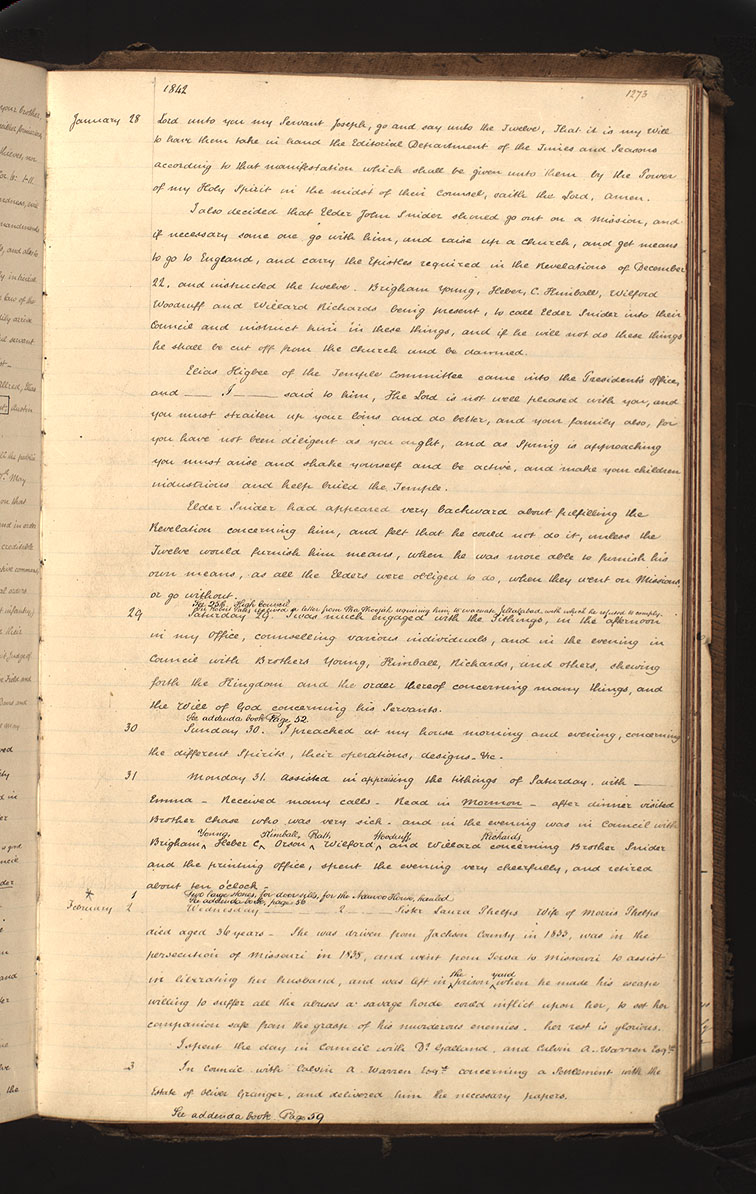 1842
1273
January 28 Lord unto you my Servant Joseph, go and say unto the Twelve, That it is my will
to have them take in hand the Editorial Department of the Times and Seasons
according to that manifestation which shall be given unto them by the Power
of my Holy Spirit in the midst of their Counsel, saith the Lord, amen.
I also decided that Elder John Snider should go out on a Mission, and
if necessary some one go with him, and raise up a church, and get means
to go to England, and carry the Epistles required in the Revelations of December
22, and instructed the twelve. Brigham Young, Heber, C. Kimball, Wilford
Woodruff and Willard Richards being present, to call Elder Snider into their
Council and instruct him in these things, and if he will not do these things
he shall be cut off from the church and be damned.
Elias Higbee of the Temple Committee came into the President's office,
and — I — said to him, The Lord is not well pleased with you, and
you must straiten up your loins and do better, and your family also, for
you have not been diligent as you ought, and as Spring is approaching
you must arise and shake yourself and be active, and make your children
industrious and help build the Temple.
Elder Snider had appeared very backward about fulfilling the
Revelation concerning him, and felt that he could not do it, unless the
Twelve would furnish him means, when he was more able to furnish his
own means, as all the Elders were obliged to do, when they went on Missions,
or go without.
High Council
received a letter from requiring him to evacuate Jellalabad, with which he refused to comply.
29 Saturday 29. I was much engaged with the Tithings, in the afternoon
in my office, counselling various individuals, and in the evening in
Council with Brothers Young, Kimball, Richards, and others, shewing
forth the Kingdom and the order thereof concerning many things, and
the Will of God concerning his Servants.
See addenda book Page 52
30 Sunday 30. I preached at my house morning and evening, concerning
the different Spirits, their operations, designs &c.
31 Monday 31. Assisted in appraising the tithings of Saturday. with —
Emma — Received many calls — Read in Mormon — after dinner visited
Brother Chase who was very sick — and in the evening was in Council with
Young, Kimball, Pratt, Woodruff, Richards
Brigham ^ Heber C ^ Orson ^ Wilford ^ and Willard concerning Brother Snider
and the printing office, spent the evening very cheerfully, and retired
about ten o'clock —
* 1 Two large stones, for door sills, for the Nauvoo House, hauled
See addenda book, page 56
February 2 Wednesday — 2 — Sister Laura Phelps Wife of Morris Phelps
died aged 36 years — She was driven from Jackson County in 1833, was in the
persecution of Missouri in 1838, and went from Iowa to Missouri to assist
the yard
in liberating her husband, and was left in ^ prison ^ when he made his escape
willing to suffer all the abuses a savage horde could inflict upon her, to set her
companion safe from the grasp of his murderous enemies. her rest is glorious.
I spent the day in Council with Dr Galland, and Calvin A. Warren Esqre
3 In Council with Calvin A Warren Esqre concerning a Settlement with the
Estate of Oliver Granger, and delivered him the necessary papers.
See addenda book Page 59